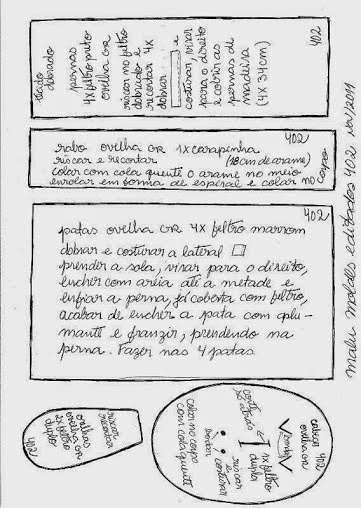 tecido
dobrado
pernas
4x feltro preto
ovelha GR
riscar no feltro
dobrado e
recortar 4x
dobrar e
costurar, virar
para o direito
e cobrir as
pernas de
madeira
(4x 34cm)
402
402
rabo ovelha GR 1x carapinha
riscar e recortar (18cm de arame)
colar com cola quente o arame no meio
enrolar em forma de espiral e colar no corpo
402
patas ovelha GR 4x feltro marrom
dobrar e costurar a lateral
prender a sola, virar para o direito,
encher com areia até a metade e
enfiar a perna, já coberta com feltro,
acabar de encher a pata com plu-
mante e franzir, prendendo na
perna. Fazer nas 4 patas.
malu moldes editados 402 jan/2011
riscar
recortar
orelhas
ovelha GR
2x feltro
duplo
402
cabeça
ovelha GR
402
1x feltro
duplo
riscar
e costurar
colar no corpo
com cola quente